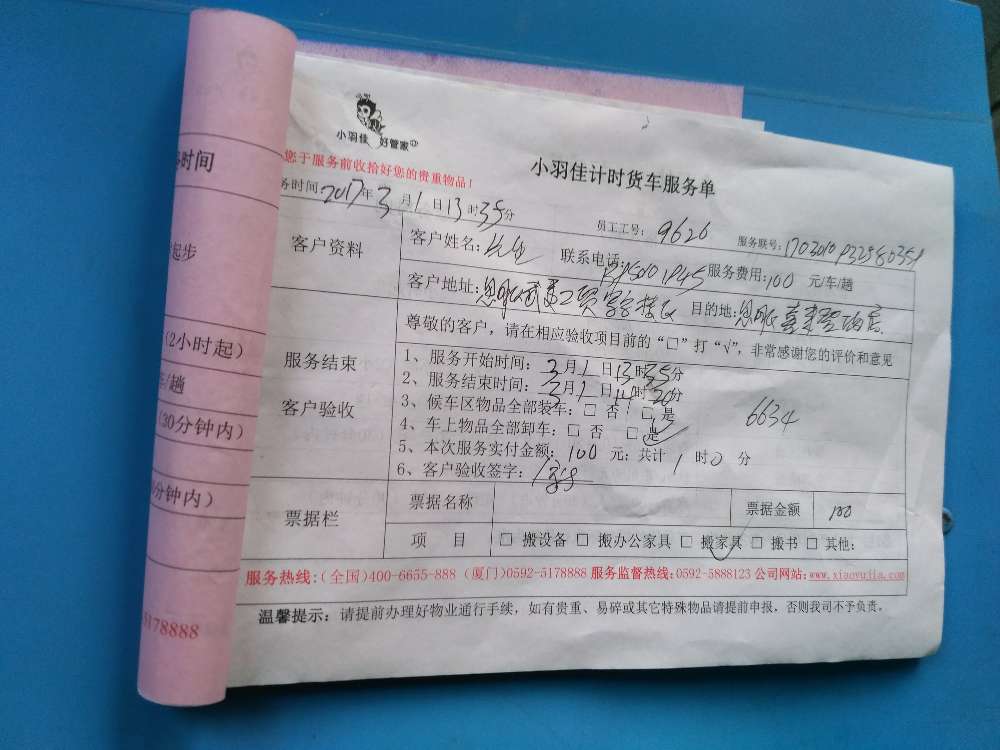 小羽佳 好管家
小羽佳计时货车服务单
您于服务前收拾好您的贵重物品！
务时间:2017年3月1日13时35分
员工工号: 9626
服务联号:
客户资料
客户姓名:
联系电话:
服务费用:100 元/车/趟
客户地址:
目的地:
尊敬的客户，请在相应验收项目前的“□”打“√”，非常感谢您的评价和意见
服务结束
客户验收
1、服务开始时间: 3月1日13时35分
2、服务结束时间: 3月1日14时30分
3、候车区物品全部装车: □ 否 □ 是
6634
4、车上物品全部卸车: □ 否 □ 是
5、本次服务实付金额: 100 元: 共计 1 时0 分
6、客户验收签字:
票据栏
票据名称
票据金额 100
项 目 □ 搬设备 □ 搬办公家具 □ 搬家具 □ 搬书 □ 其他:
服务热线:(全国)400-6655-888 (厦门)0592-5178888 服务监督热线:0592-5888123 公司网站: www.xiaoyujia.com
温馨提示: 请提前办理好物业通行手续，如有贵重、易碎或其它特殊物品请提前申报，否则我司不予负责。
时间
起步
(2小时起)
/趟
(30分钟内)
分钟内)
5178888